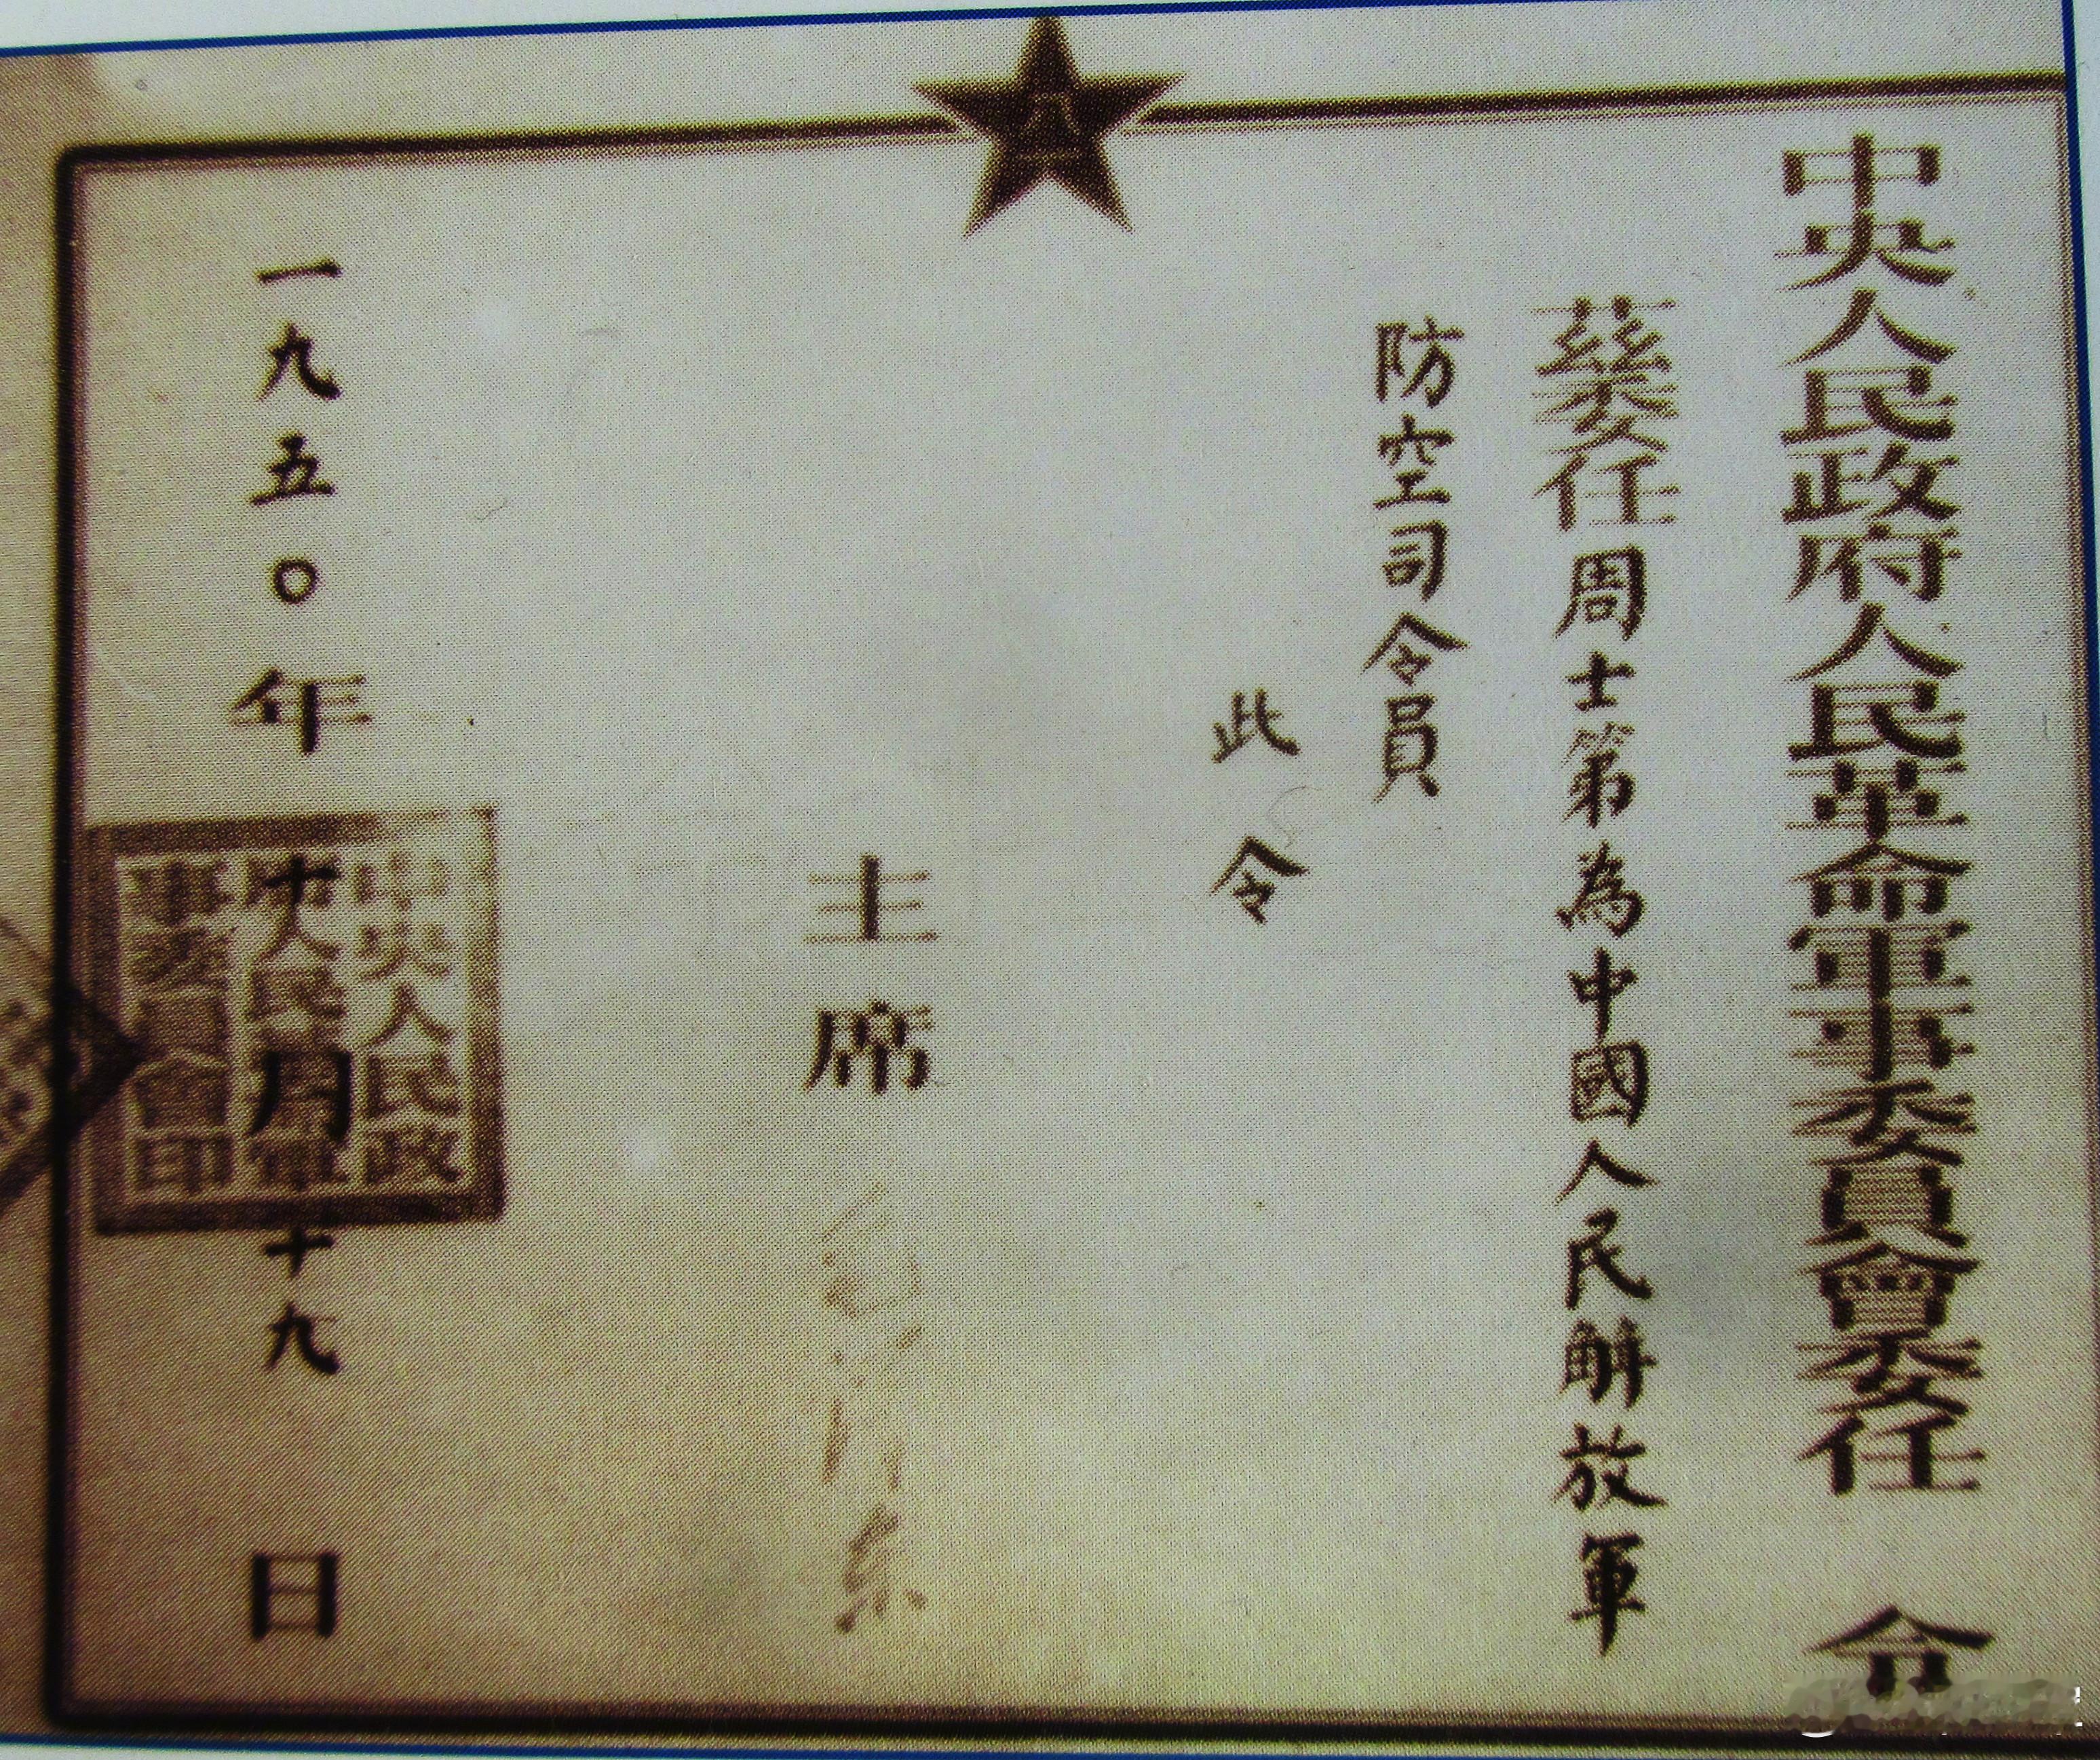 中央人民政府人民革命軍事委員會委任令
茲委任周士第為中國人民解放軍
防空司令員
此令
主席
一九五〇年十月十九日
中央人民政
府人民革命軍
事委員會印
八一